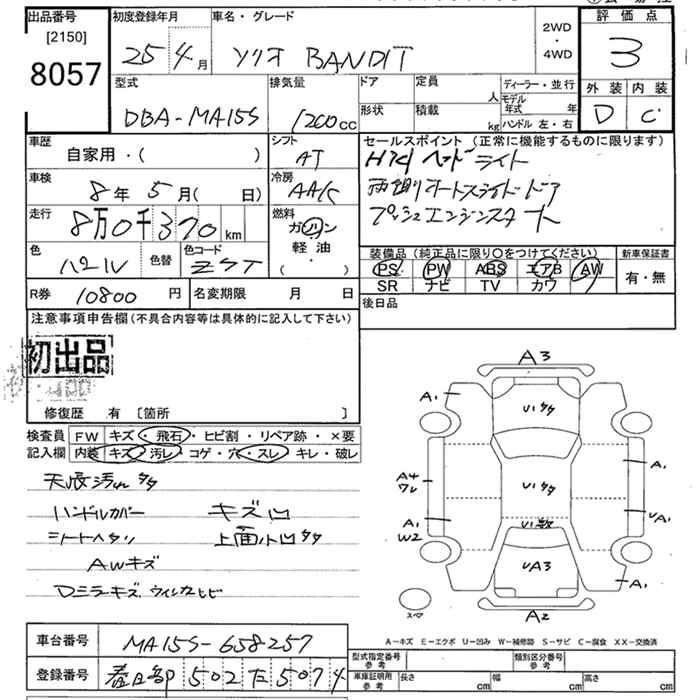 出品番号
[2150]
8057
初度登録年月
25年4月
車名・グレード
ソリオ BANDIT
2WD
・
4WD
評価点
3
外装 内装
D C
型式
DBA-MA15S
排気量
1200cc
ドア
形状
定員
人
積載
kg
ディーラー・並行
モデル年式 年
ハンドル 左・右
車歴
自家用・( )
シフト
AT
車検
8年5月( 日)
冷房
AAC
走行
8万0千370km
燃料
ガソリン
軽油
( ・ )
色
パール
色替
色コード
ZST
R券 10800円
名変期限 月 日
セールスポイント (正常に機能するものに限ります)
HID ヘッドライト
両側オートスライドドア
プッシュエンジンスタート
装備品 (純正品に限り○をつけてください)
PS PW ABS エアB AW
SR ナビ TV カワ
新車保証書
有・無
後日品
注意事項申告欄(不具合内容等は具体的に記入して下さい)
初出品
修復歴 有 [箇所 ]
検査員記入欄
FW キズ・飛石・ヒビ割・リペア跡・×要
内装 キズ・汚レ・コゲ・穴・スレ・キレ・破レ
天張汚れ多々
ハンドルカバー キズ凹
シートヘタリ 上面小凹多々
AWキズ
Dミラーキズ、ウィンカヒビ
A3
A1
U1多々
A1
A4
ワレ
U1多々
A1
W2
UA1
U1多数
UA3
A1
スペア
A2
A-キズ E-エクボ U-凹み W-補修跡 S-サビ C-腐食 XX-交換済
車台番号 MA15S-658257
登録番号 春日部 502 た 5074
型式指定番号 参考
類別区分番号 参考
車庫証明用 参考
長さ cm
幅 cm
高さ cm